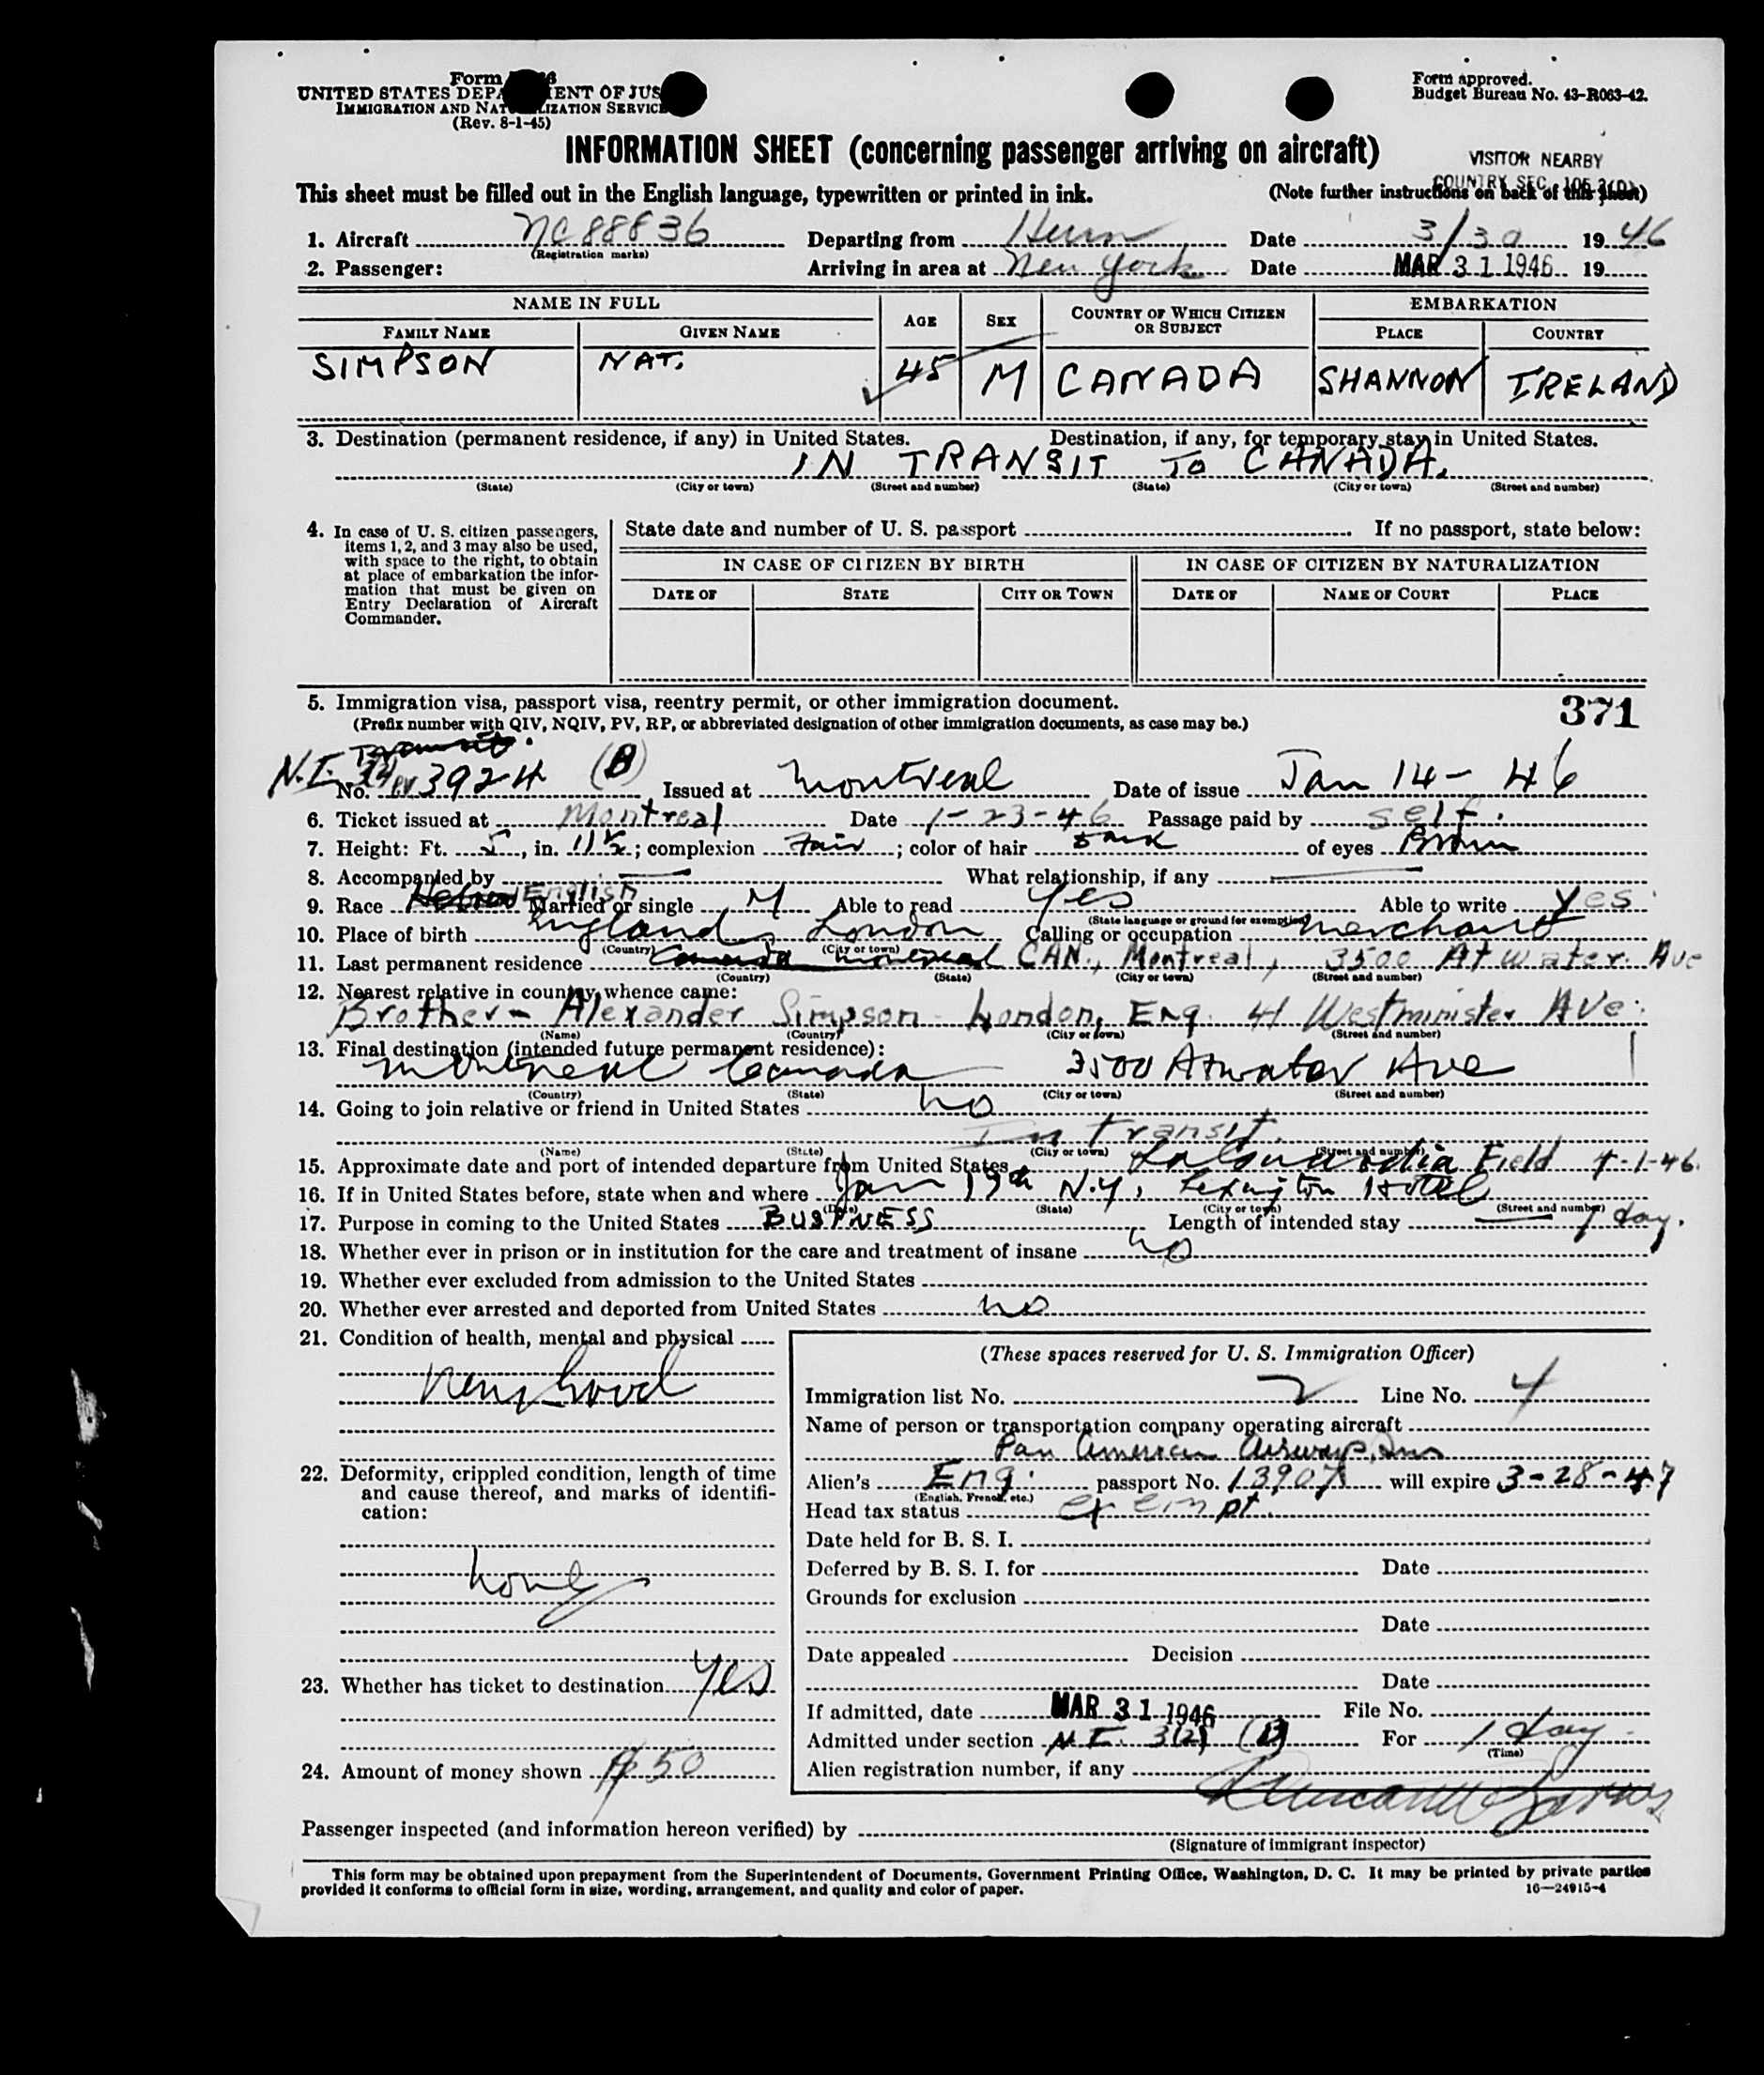 Form
UNITED STATES DEPA ENT OF JUS
IMMIGRATION AND NAT IZATION SERVICE
(Rev. 8-1-45)
Form approved.
Budget Bureau No. 43-R063-42.
INFORMATION SHEET (concerning passenger arriving on aircraft)
VISITOR NEARBY
COUNTRY SEC.
This sheet must be filled out in the English language, typewritten or printed in ink. (Note further instructions on back of this sheet)
1. Aircraft NC 88836 Departing from Hurn Date 3/30 1946
(Registration marks)
2. Passenger: Arriving in area at New York Date MAR 31 1946 19
NAME IN FULL AGE SEX COUNTRY OF WHICH CITIZEN OR SUBJECT EMBARKATION
FAMILY NAME GIVEN NAME PLACE COUNTRY
SIMPSON NAT. 45 M CANADA SHANNON IRELAND
3. Destination (permanent residence, if any) in United States. Destination, if any, for temporary stay in United States.
IN TRANSIT TO CANADA.
(State) (City or town) (Street and number) (State) (City or town) (Street and number)
4. In case of U. S. citizen passengers,
items 1, 2, and 3 may also be used,
with space to the right, to obtain
at place of embarkation the infor-
mation that must be given on
Entry Declaration of Aircraft
Commander.
State date and number of U. S. passport If no passport, state below:
IN CASE OF CITIZEN BY BIRTH IN CASE OF CITIZEN BY NATURALIZATION
DATE OF STATE CITY OR TOWN DATE OF NAME OF COURT PLACE
5. Immigration visa, passport visa, reentry permit, or other immigration document. 371
(Prefix number with QIV, NQIV, PV, RP, or abbreviated designation of other immigration documents, as case may be.)
Transit.
N.I. No. 3924 (B) Issued at Montreal Date of issue Jan 14 - 46
6. Ticket issued at Montreal Date 1-23-46 Passage paid by self.
7. Height: Ft. 5, in. 11½; complexion Fair; color of hair Dark of eyes Brown
8. Accompanied by — What relationship, if any —
9. Race Hebrew English Married or single M Able to read Yes Able to write Yes
(State language or ground for exemption)
10. Place of birth England London Calling or occupation Merchant
(Country) (City or town)
11. Last permanent residence Canada Montreal CAN., Montreal, 3500 Atwater Ave
(Country) (State) (City or town) (Street and number)
12. Nearest relative in country whence came:
Brother - Alexander Simpson London, Eng. 41 Westminister Ave.
(Name) (Country) (City or town) (Street and number)
13. Final destination (intended future permanent residence):
Montreal Canada 3500 Atwater Ave
(Country) (State) (City or town) (Street and number)
14. Going to join relative or friend in United States no
In transit.
(Name) (State) (City or town) (Street and number)
15. Approximate date and port of intended departure from United States LaGuardia Field 4-1-46.
16. If in United States before, state when and where Jan 19th N.Y. Lexington Hotel
(Date) (State) (City or town) (Street and number)
17. Purpose in coming to the United States BUSINESS Length of intended stay 1 day.
18. Whether ever in prison or in institution for the care and treatment of insane no
19. Whether ever excluded from admission to the United States
20. Whether ever arrested and deported from United States no
21. Condition of health, mental and physical
Very Good
22. Deformity, crippled condition, length of time
and cause thereof, and marks of identifi-
cation:
none
23. Whether has ticket to destination Yes
24. Amount of money shown $50
(These spaces reserved for U. S. Immigration Officer)
Immigration list No. 2 Line No. 4
Name of person or transportation company operating aircraft
Pan American Airways, Inc
Alien's Eng. passport No. 13907 will expire 3-28-47
(English, French, etc.)
Head tax status exempt.
Date held for B. S. I.
Deferred by B. S. I. for Date
Grounds for exclusion
Date
Date appealed Decision
Date
If admitted, date MAR 31 1946 File No.
Admitted under section N.I. 3(2) (B) For 1 day
(Time)
Alien registration number, if any
Passenger inspected (and information hereon verified) by
(Signature of immigrant inspector)
This form may be obtained upon prepayment from the Superintendent of Documents, Government Printing Office, Washington, D. C. It may be printed by private parties
provided it conforms to official form in size, wording, arrangement, and quality and color of paper. 16—24915-4